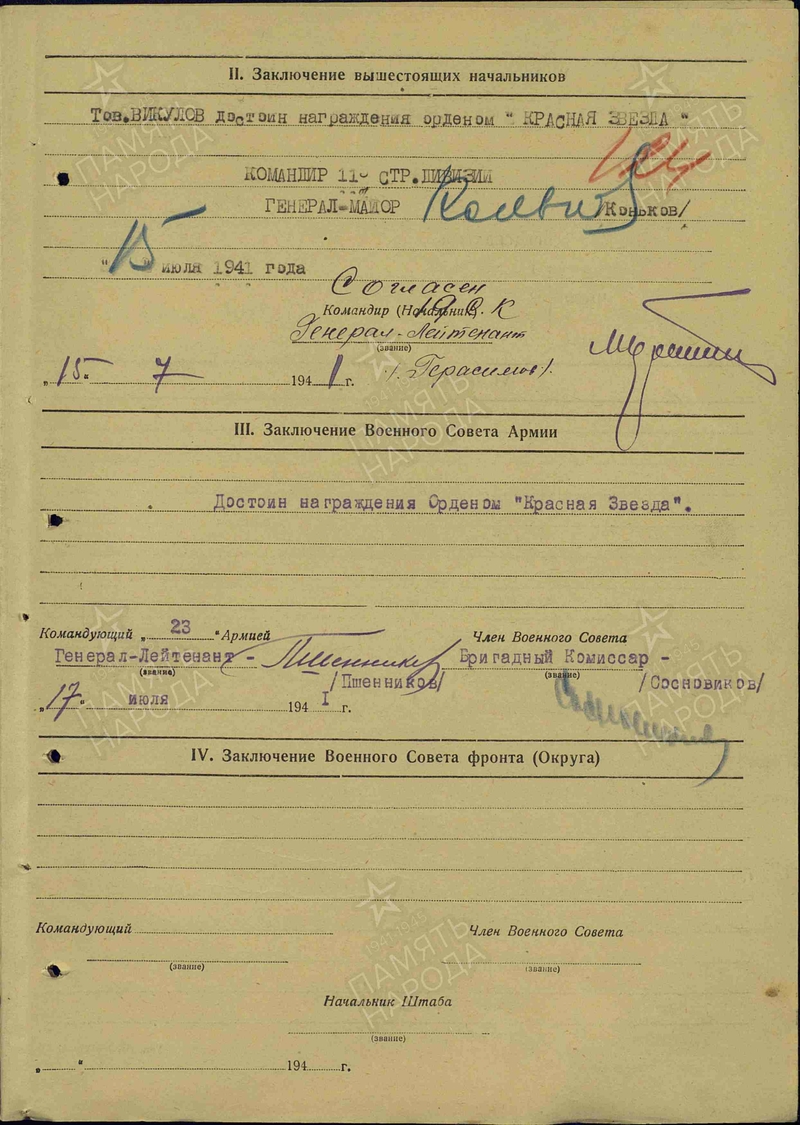 II. Заключение вышестоящих начальников
Тов.ВИКУЛОВ достоин награждения орденом " КРАСНАЯ ЗВЕЗДА "
КОМАНДИР 11 СТР.ДИВИЗИИ
ГЕНЕРАЛ-МАЙОР /Коньков/
"15" июля 1941 года
Согласен
Командир (Начальник) 19 с К
Генерал-Лейтенант
(звание)
/Герасимов/.
„15“ 7 1941 г.
III. Заключение Военного Совета Армии
Достоин награждения Орденом "Красная Звезда".
Командующий „23“ Армией
Член Военного Совета
Генерал-Лейтенант - Пшенников
Бригадный Комиссар -
(звание)
(звание)
/Пшенников/
/Сосновиков/
„17“ июля 194I г.
IV. Заключение Военного Совета фронта (Округа)
Командующий
Член Военного Совета
(звание)
(звание)
Начальник Штаба
(звание)
„ “ 194 г.
ПАМЯТЬ НАРОДА
ПАМЯТЬ НАРОДА
ПАМЯТЬ НАРОДА
ПАМЯТЬ НАРОДА
ПАМЯТЬ НАРОДА
1941-1945
ПАМЯТЬ НАРОДА